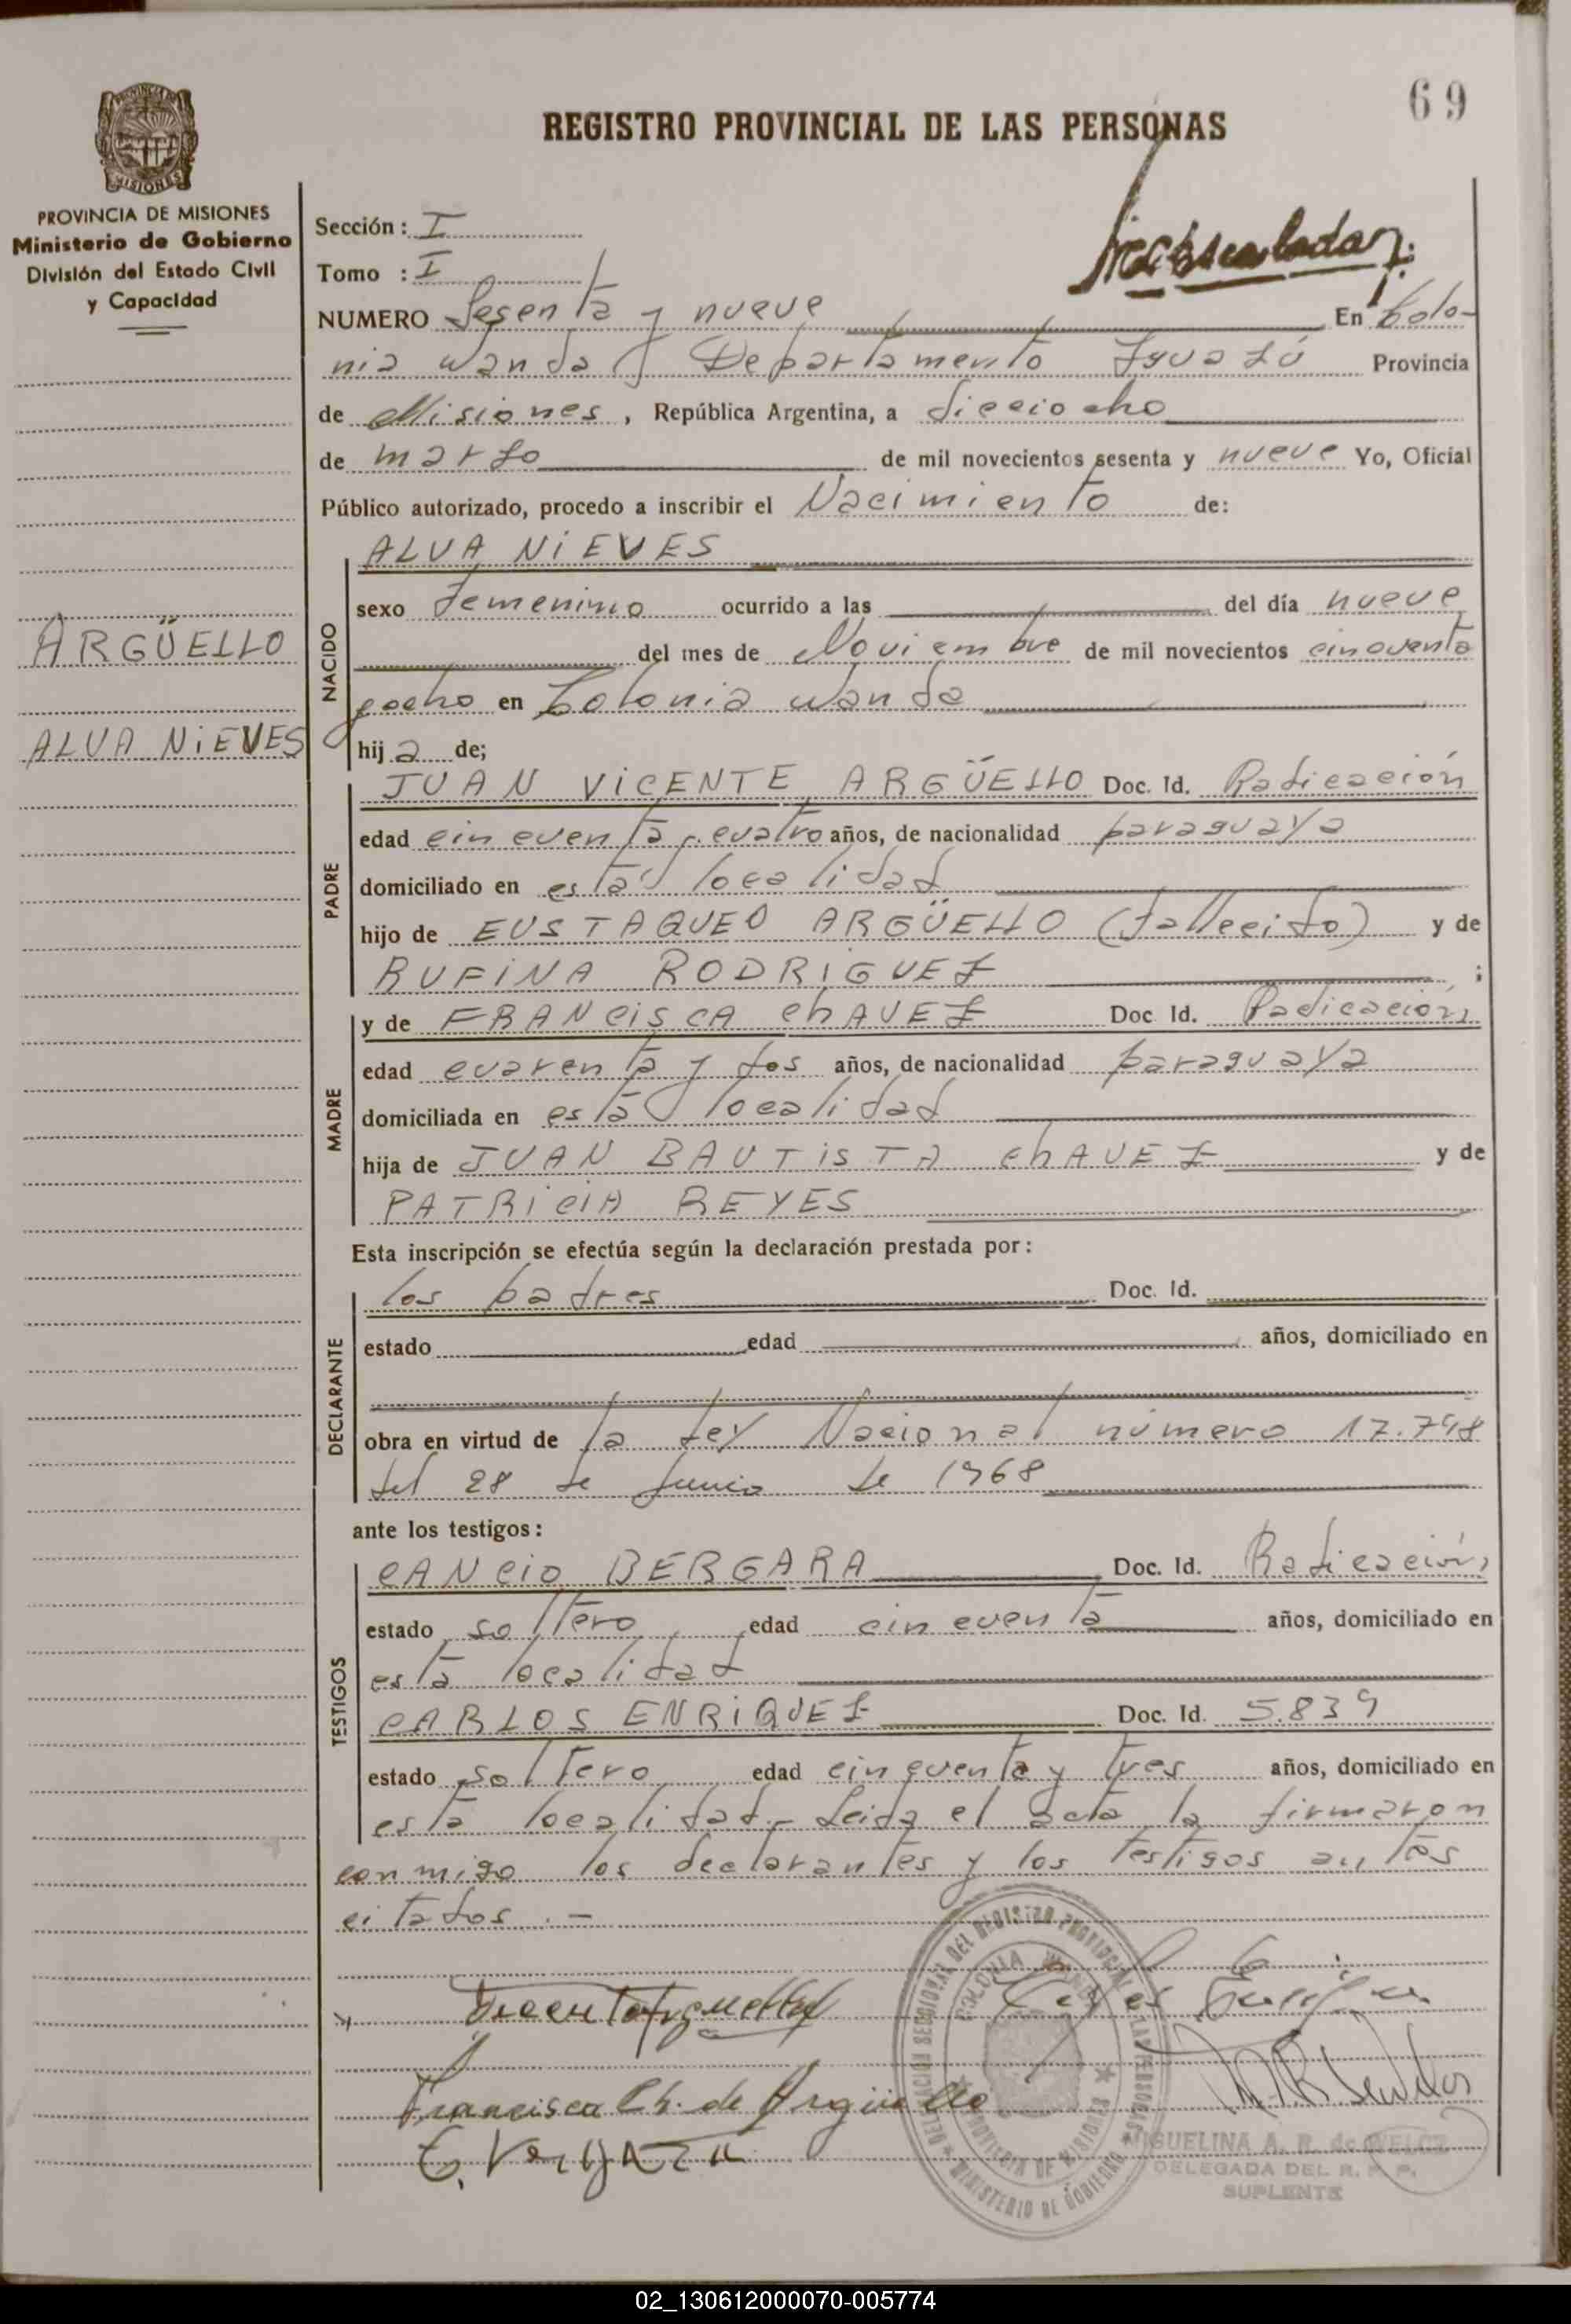 69
REGISTRO PROVINCIAL DE LAS PERSONAS
MISIONES
PROVINCIA DE MISIONES
Ministerio de Gobierno
División del Estado Civil
y Capacidad
Sección: I
Tomo : I
NUMERO Sesenta y nueve En Colo-
nia Wanda Departamento Iguazú Provincia
de Misiones, República Argentina, a dieciocho
de marzo de mil novecientos sesenta y nueve Yo, Oficial
Público autorizado, procedo a inscribir el Nacimiento de:
ALVA NiEVES
NACIDO
sexo femenino ocurrido a las del día nueve
ARGÜELLO
del mes de Noviembre de mil novecientos cincuenta
yocho en Colonia Wanda
ALVA NiEVES
hij a de;
PADRE
JUAN ViCENTE ARGÜELLO Doc. Id. Radicación
edad cincuenta y cuatro años, de nacionalidad paraguaya
domiciliado en esta localidad
hijo de EUSTAQUEO ARGÜELLO (fallecido) y de
RUFiNA RODRiGUEZ ;
MADRE
y de FRANCiSCA ChAVEZ Doc Id. Radicación
edad cuarenta y dos años, de nacionalidad paraguaya
domiciliada en esta localidad
hija de JUAN BAUTiSTA ChAVEZ y de
PATRiCiA REYES
Esta inscripción se efectúa según la declaración prestada por:
DECLARANTE
los padres Doc. Id.
estado edad años, domiciliado en
obra en virtud de la Ley Nacional número 17.798
del 28 de Junio de 1968
ante los testigos:
TESTIGOS
CANCiO BERGARA Doc. Id. Radicación
estado soltero edad cincuenta años, domiciliado en
esta localidad
CARLOS ENRiQUEZ Doc. Id. 5.839
estado soltero edad cinquenta y tres años, domiciliado en
esta localidad.- Leida el acta la firmaron
conmigo los declarantes y los testigos
citados.-
Francisca Ch. de Argüello
MIGUELINA A. R. de WELCZ
DELEGADA DEL R. P. P.
SUPLENTE
02_130612000070-005774